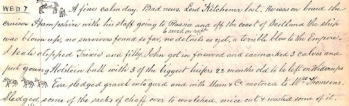 WED 7 A fine calm day. Bad news. Lord Kitchener lost. He was on board the
cruiser Hampshire with his staff going to Russia and off the coast of Scotland the ship
was blown up, no survivors found so far, no details as yet, a terrible blow to the Empire.
I Neals clipped Trixie and filly. John got in forward and 3 calves and
put young Holstein bull with 3 of the biggest heifers 22 months old is to left
Eve. sledged gravel into yard and with Mary & C. motored to Mrs Thomsons.
Sledged some of the sacks of chaff over to woolshed, mice cut & wasted some of it.